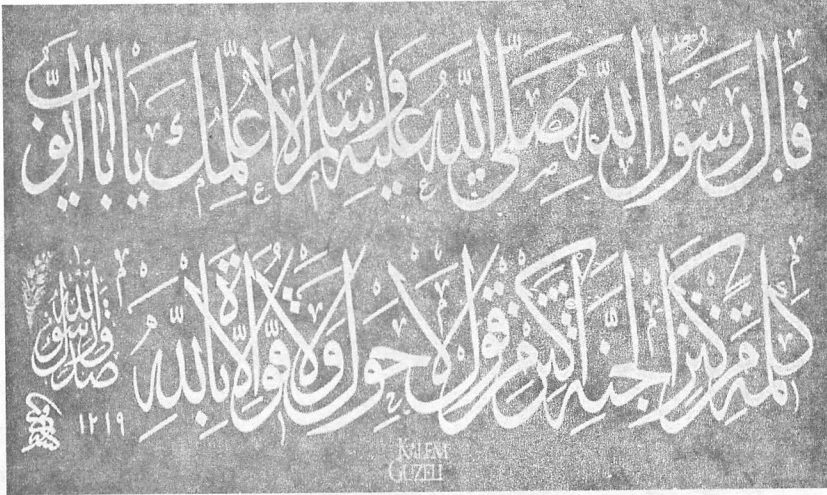 قال رسول الله صلى الله عليه وسلم ألا أعلمك يا أبا أيوب
كلمة من كنز الجنة أكثر من قول لا حول ولا قوة إلا بالله
صدق رسول الله
١٢١٩
KALEM
GÜZELI